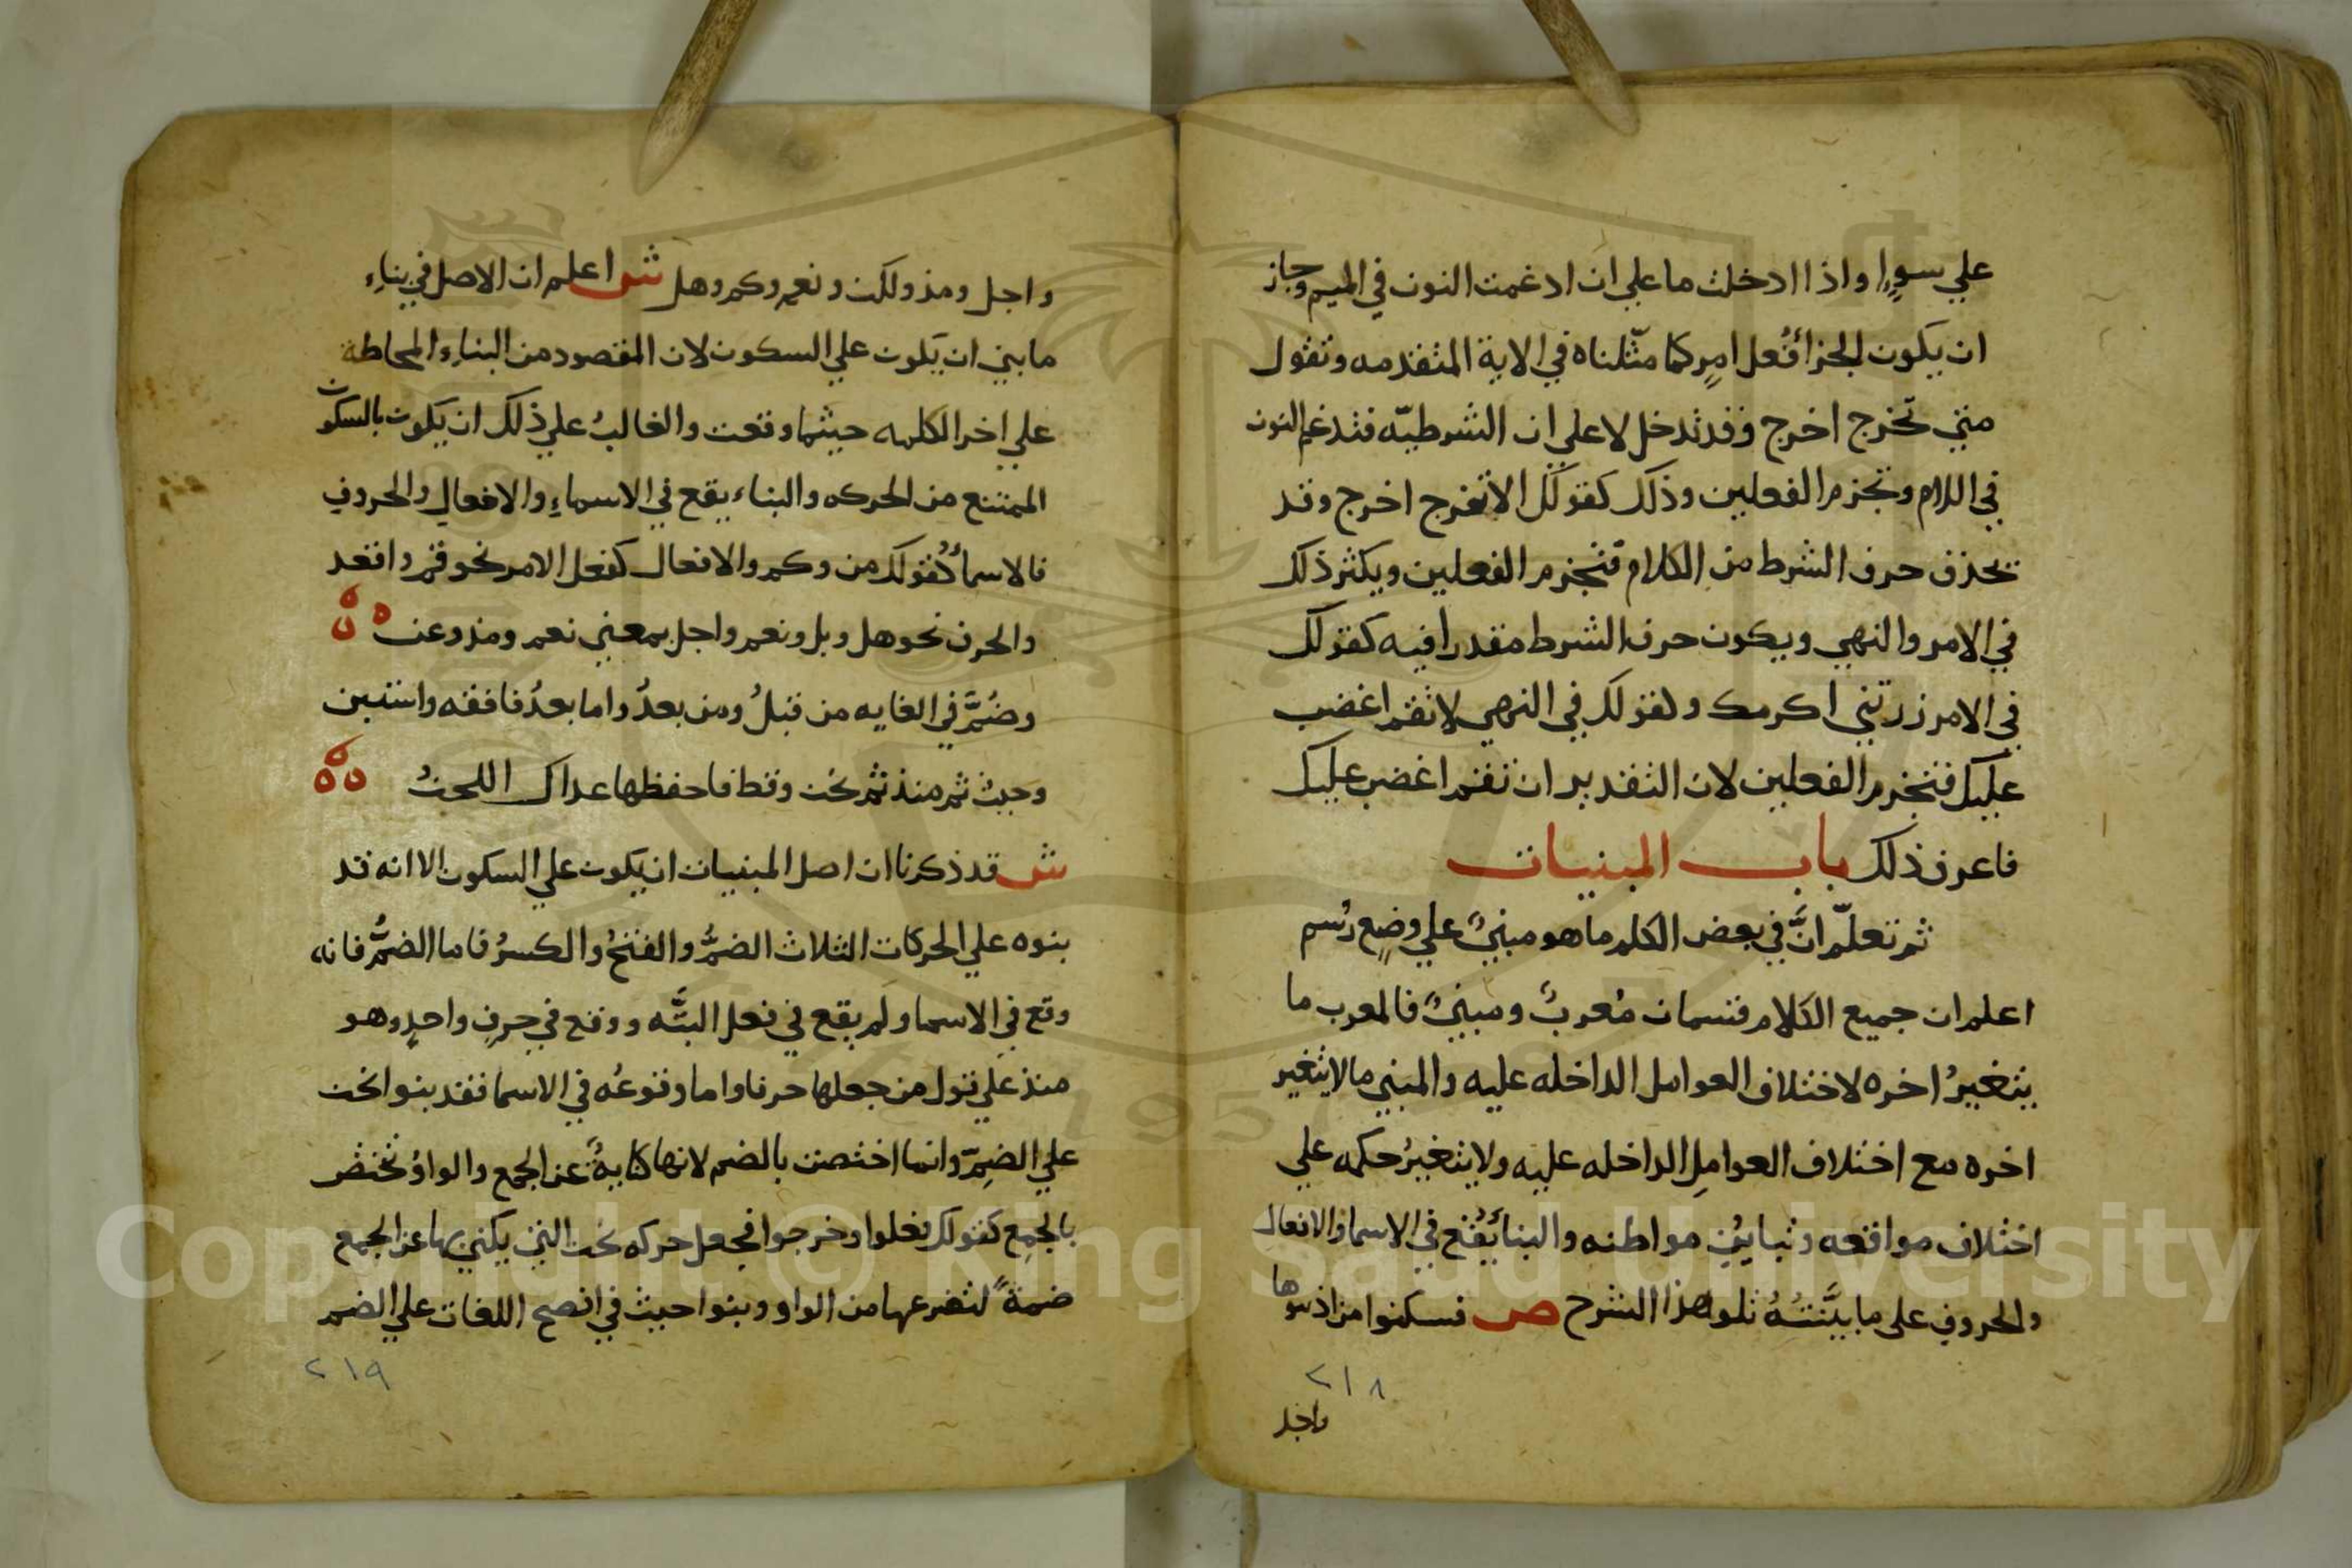 علي سوءٍ واذا ادخلت ما علي ان ادغمت النون في الميم وجاز
ان يكون الجزأ فعل امرٍ كما مثّلناه في الاية المتقدمه وتقول
متي تخرج اخرج وقد تدخل لا علي ان الشرطيّه فتدغم النون
في اللام وتجزم الفعلين وذلك كقولك الا تخرج اخرج وقد
يحذف حرف الشرط من الكلام فتجزم الفعلين ويكثر ذلك
في الامر والنهي ويكون حرف الشرط مقدرا فيه كقولك
في الامر زرتني اكرمك وكقولك في النهي لا تقم اغضب
عليك فتجزم الفعلين لان التقدير ان تقم اغضب عليك
فاعرف ذلك باب المبنيات
ثم تعلّم انَّ في بعض الكلم ما هو مبنيٌ علي وضعٍ رُسم
اعلم ان جميع الكلام قسمان مُعربٌ ومبنيٌ فالمعرب ما
يتغيرُ اخره لاختلاف العوامل الداخله عليه والمبني ما لا يتغير
اخره مع اختلاف العواملِ الداخله عليه ولا يتغيرُ حكمه علي
اختلاف مواقعه وتباينِ مواطنه والبنأ يقع في الاسما والافعال
والحروف على ما بيَّنتُهُ تلو هذا الشرح ص فسكنوا من اذ بنوها
٢١٨
واجل
واجل ومذ ولكن ونعم وكم وهل ش اعلم ان الاصل في بناءِ
ما بني ان يكون علي السكون لان المقصود من البناء المحاطة
علي اخر الكلمه حيثما وقعت والغالبُ علي ذلك ان يكون بالسكون
الممتنع من الحركه والبناء يقع في الاسماءِ والافعالِ والحروفِ
فالاسمأ كقولك من وكم والافعال كفعل الامر نحو قم واقعد
والحرف نحو هل وبل ونعم واجل بمعني نعم ومذ وعن
وضُمَّ في الغايه من قبلُ ومن بعدُ واما بعدُ فافقه واستبن
وحيثُ ثم منذ ثم نحن وقط فاحفظها عداك اللحنُ
ش قد ذكرنا ان اصل المبنيات ان يكون علي السكون الا انه قد
بنوه علي الحركات الثلاث الضمُّ والفتحُ والكسرُ فاما الضمُّ فانه
وقع في الاسما ولم يقع في فعل البتَّه ووقع في حرفٍ واحدٍ وهو
منذ علي قول من جعلها حرفا واما وقوعُه في الاسما فقد بنوا نحن
علي الضمِّ وانما اختصت بالضم لانها كنايةٌ عن الجمع والواوُ تختض
بالجمعِ كقولك فعلوا وخرجوا فجعل حركه نحن التي يكني بها عن الجمع
ضمةً لتفرعها من الواو وبنوا حيث في افصح اللغات علي الضم
٢١٩
Copyright © King Saud University
1957